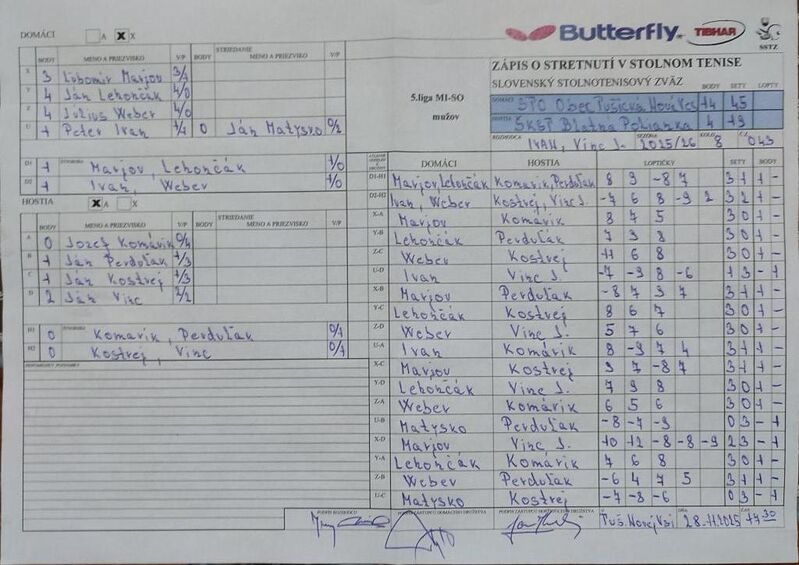 DOMÁCI A X X
Butterfly TIBHAR SSTZ
BODY MENO A PRIEZVISKO V/P BODY STRIEDANIE MENO A PRIEZVISKO V/P
ZÁPIS O STRETNUTÍ V STOLNOM TENISE
SLOVENSKÝ STOLNOTENISOVÝ ZVÄZ BODY SETY LOPTY
X 3 Ľubomír Marjov 3/1
Y 4 Ján Lehončák 4/0
Z 4 Július Weber 4/0
U 1 Peter Ivan 1/1 0 Ján Matysko 0/2
5.liga MI-SO
mužov
DOMÁCI STO Obec Pušická Nová Ves 14 45
HOSTIA ŠKST Blatná Polianka 4 19
ROZHODCA IVAN, Vinc J. SEZÓNA 2025/26 KOLO 8 Č.Z. 043
D1 1 Marjov, Lehončák 1/0
D2 1 Ivan, Weber 1/0
HOSTIA X A X
BODY MENO A PRIEZVISKO V/P BODY STRIEDANIE MENO A PRIEZVISKO V/P
A 0 Jozef Komárik 0/4
B 1 Ján Perduľak 1/3
C 1 Ján Kostrej 1/3
D 2 Ján Vinc 2/2
H1 0 Komárik, Perduľak 0/1
H2 0 Kostrej, Vinc 0/1
DOMÁCI HOSTIA LOPTIČKY SETY BODY
D1-H1 Marjov, Lehončák Komárik, Perduľak 8 9 -8 7 3 1 1 -
D2-H2 Ivan, Weber Kostrej, Vinc J. -7 6 8 -9 2 3 2 1 -
X-A Marjov Komárik 8 7 5 3 0 1 -
Y-B Lehončák Perduľak 7 9 8 3 0 1 -
Z-C Weber Kostrej 11 6 8 3 0 1 -
U-D Ivan Vinc J. -7 -9 8 -6 1 3 - 1
X-B Marjov Perduľak -8 7 9 7 3 1 1 -
Y-C Lehončák Kostrej 8 6 7 3 0 1 -
Z-D Weber Vinc J. 5 7 6 3 0 1 -
U-A Ivan Komárik 8 -9 7 4 3 1 1 -
X-C Marjov Kostrej 9 7 -8 7 3 1 1 -
Y-D Lehončák Vinc J. 7 9 8 3 0 1 -
Z-A Weber Komárik 6 5 6 3 0 1 -
U-B Matysko Perduľak -8 -7 -9 0 3 - 1
X-D Marjov Vinc J. 10 12 -8 -8 -9 2 3 - 1
Y-A Lehončák Komárik 7 6 8 3 0 1 -
Z-B Weber Perduľak -6 4 7 5 3 1 1 -
U-C Matysko Kostrej -7 -8 -6 0 3 - 1
PODPIS ROZHODCU PODPIS ZÁSTUPCU DOMÁCEHO DRUŽSTVA PODPIS ZÁSTUPCU HOSŤUJÚCEHO DRUŽSTVA V Puš. Novej Vsi DŇA 28.11.2025 ČAS 19:30